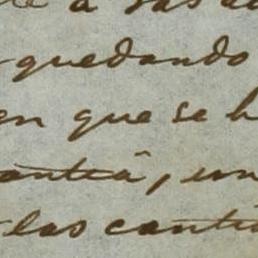 a las
quedando
en que se h
antia, un
las canti